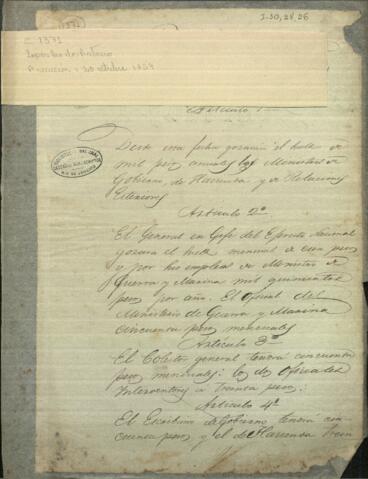 I-30,28,26
C 1371
Asuncion: 30 octubre 1854
Articulo 1º
Desde esta fecha gozarán el sueldo de
mil pesos anuales los Ministros de
Gobierno, de Hacienda y de Relaciones
Esteriores
Articulo 2º
El General en Gefe del Ejercito Nacional
gozará el sueldo mensual de cien pesos
y por su empleo de Ministro de
Guerra y Marina mil quinientos
pesos por año. El Oficial del
Ministerio de Guerra y Marina
cincuenta pesos mensuales
Articulo 3º
El Colector general tendrá cincuenta
pesos mensuales: los dos Oficiales
Interventores a treinta pesos:
Articulo 4º
El Escribano de Gobierno tendrá cin-
cuenta pesos y el de Hacienda trein